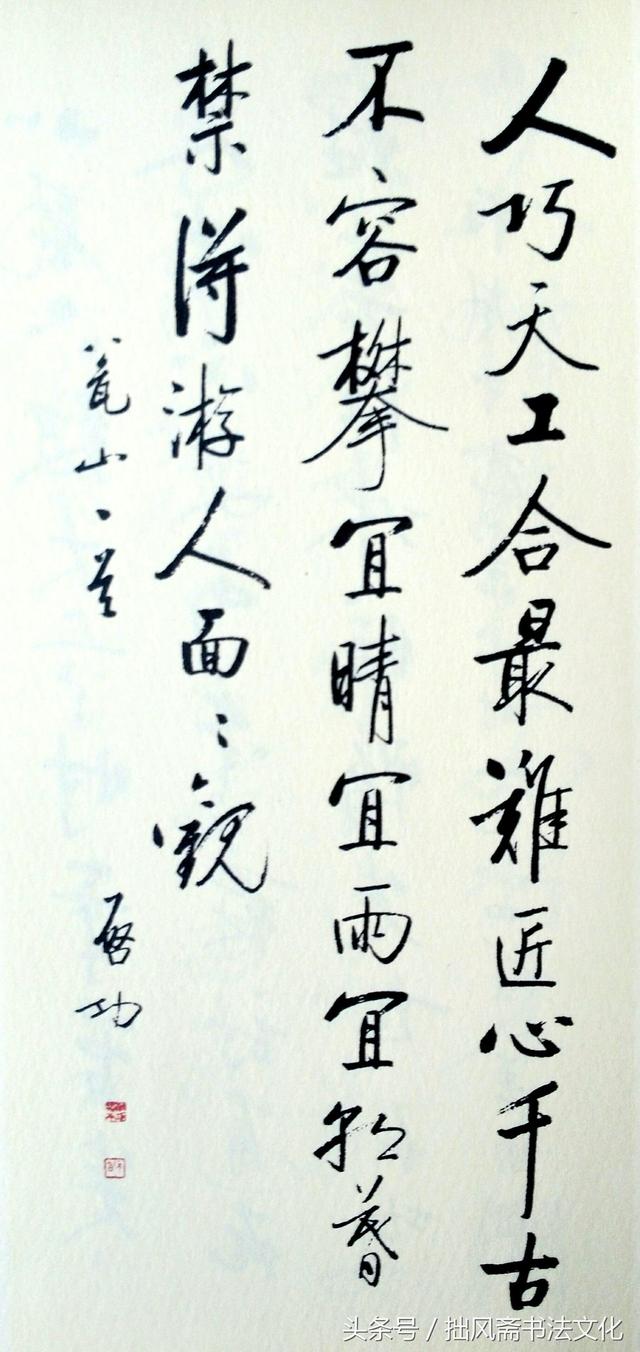 人巧天工合最難匠心千古
不容攀宜晴宜雨宜朝暮
禁得游人面〻觀
瓮山
啓功
头条号 / 拙风斋书法文化